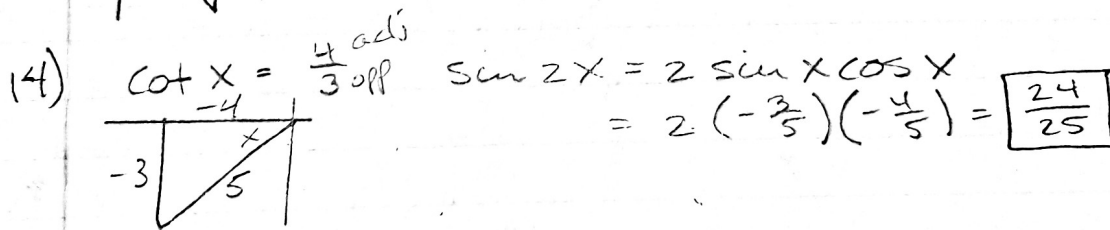 14) cot x = 4/3 adj opp sin 2x = 2 sin x cos x
= 2 (-3/5)(-4/5) = 24/25
-4
x
-3 5